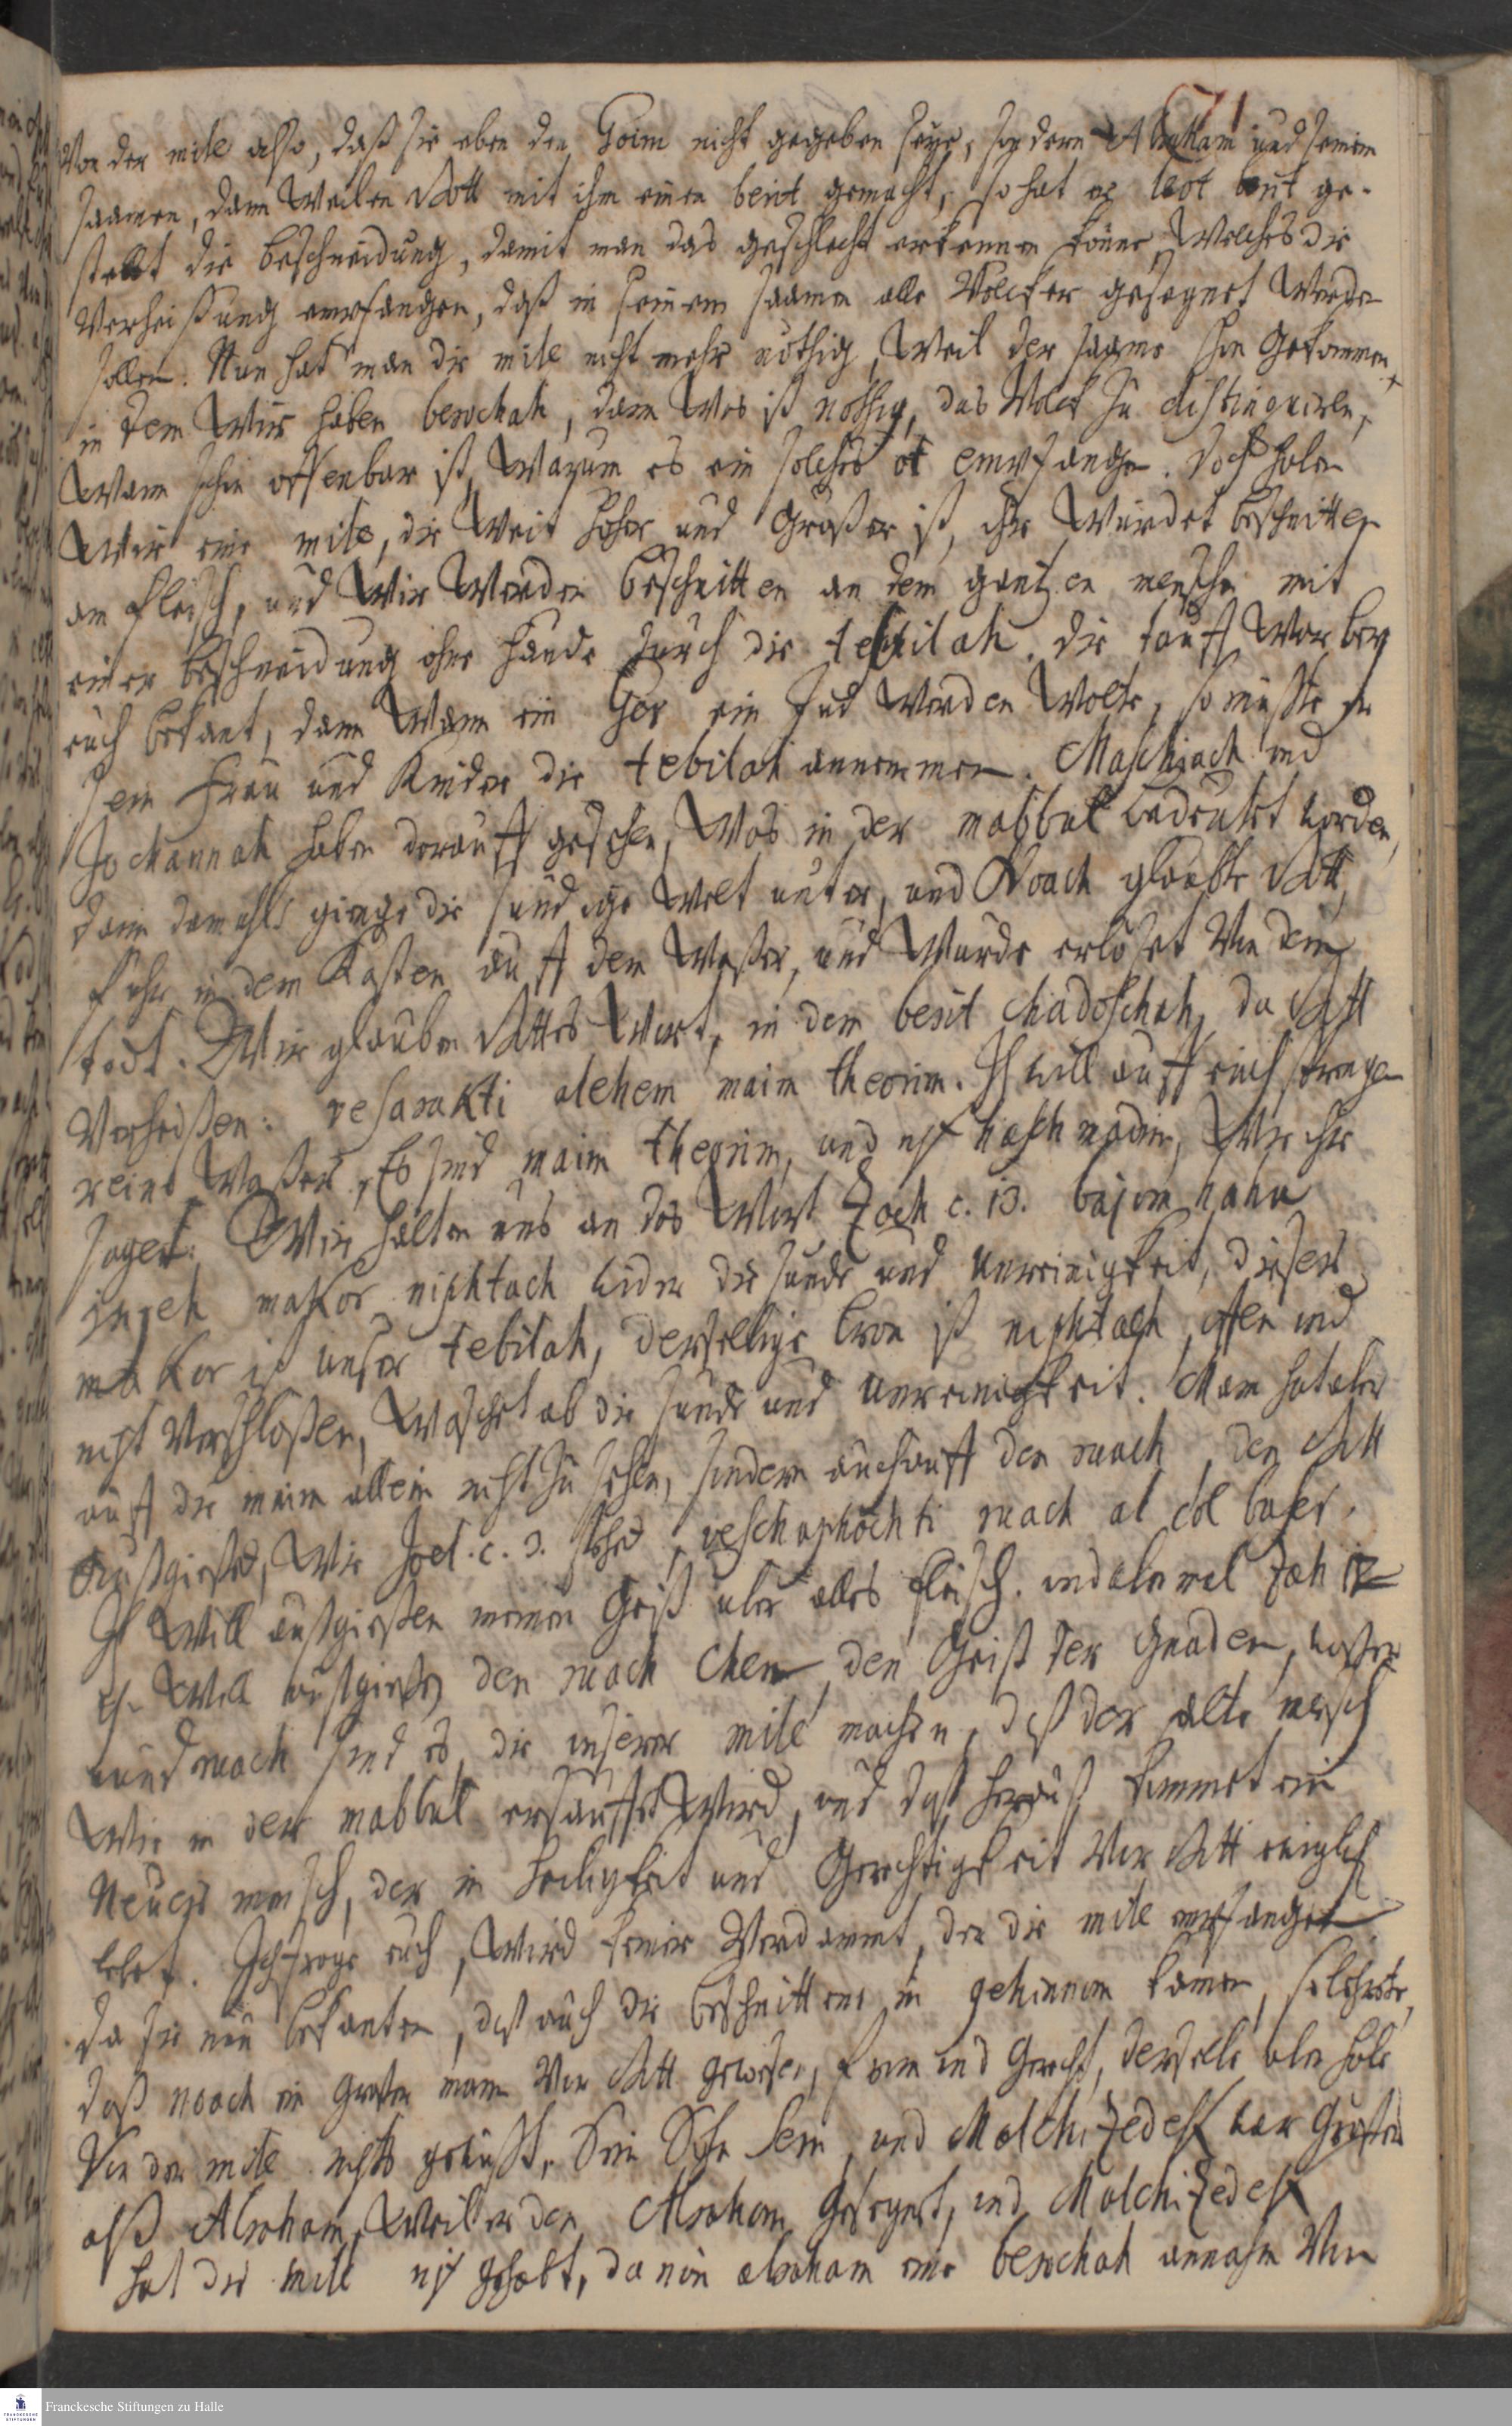 71
Von der mile also, daß sie eben den Goim nicht gegeben seye, sondern Abraham und seinem
saamen, dann weilen Gott mit ihm einen berit gemacht, so hat er leot berit ge-
stellt die beschneidung, damit man das geschlecht erkennen könne, welches die
Verheißung empfangen, daß in seinem saamen alle Völcker gesegnet werden
sollen. Nun hat man die mile nicht mehr nöthig, weil der saame schon gekommen,
in dem wir haben berachah, dann was ist nöthig, das Volck zu distinguiren,
wann schon offenbar ist, warum es ein solches ot empfangen. Doch haben
wir eine mile, die weit höher und größer ist, ihr würdet beschnitten
am fleisch, und wir werden beschnitten an dem gantzen menschen mit
einer beschneidung ohne hände durch die tebilah. die tauff war bey
euch bekant, dann wann ein Ger ein Jud werden wolte, so müßte er
sein frau und Kinder die tebilah annemmen. Maschiach und
Jochannah haben darauff gesehen, was in der mabbul bedeutet worden,
dann damahls gienge die sündige welt unter, und Noach glaubte Gott,
fuhr in dem Kasten auff dem Waßer, und wurde erlöset von dem
todt. Wir glauben Gottes Wort, in dem berit chadoschah, da Gott
verheißen: vesarakti alehem maim theorim. Ich will auff euch sprengen
reines waßer, Es sind maim theorim, und nit haschmadim, wie ihr
saget. Wir halten uns an das Wort Zach c. 13. bajom hahu
jhjeh makor niphtach wider die sünde und unreinigkeit, dieser
makor ist unser tebilah, derselbige bron ist niphtach, offen und
nicht verschloßen, waschet ab die sünde und unreinigkeit. Man hat aber
auff die maim allein nicht zu sehen, sondern auch auff den ruach, den Gott
außgießet, wie Joel. c. 3. stehet, veschaphochti ruach al col basar.
Ich will außgießen meinen Geist über alles fleisch. und abermal Zach 12
Ich will außgießen den ruach Chen, den Geist der Gnaden, waßer
und ruach sind es, die unserer mile machen, daß der alte mensch
wie in der mabbul ersäuffet wird, und daß herauß kommet ein
Neuer mensch, der in heiligkeit und Gerechtigkeit vor Gott ewiglich
lebet. Ich frage euch, wird keiner verdammt, der die mile empfanget
da sie nun bekanten, daß auch die beschnittene in gehinnom kämen, so lehrte,
daß noach ein großer mann vor Gott gewesen, from und gerecht, derselbe aber habe
von der mile nichts gewußt. Sein Sohn Sem, und Malchizedek war größer
alß Abraham, weil er den Abraham gesegnet, und Malchizedek
hat die mile nit gehabt, da nun abraham eine berachah annahm von
Franckesche Stiftungen zu Halle